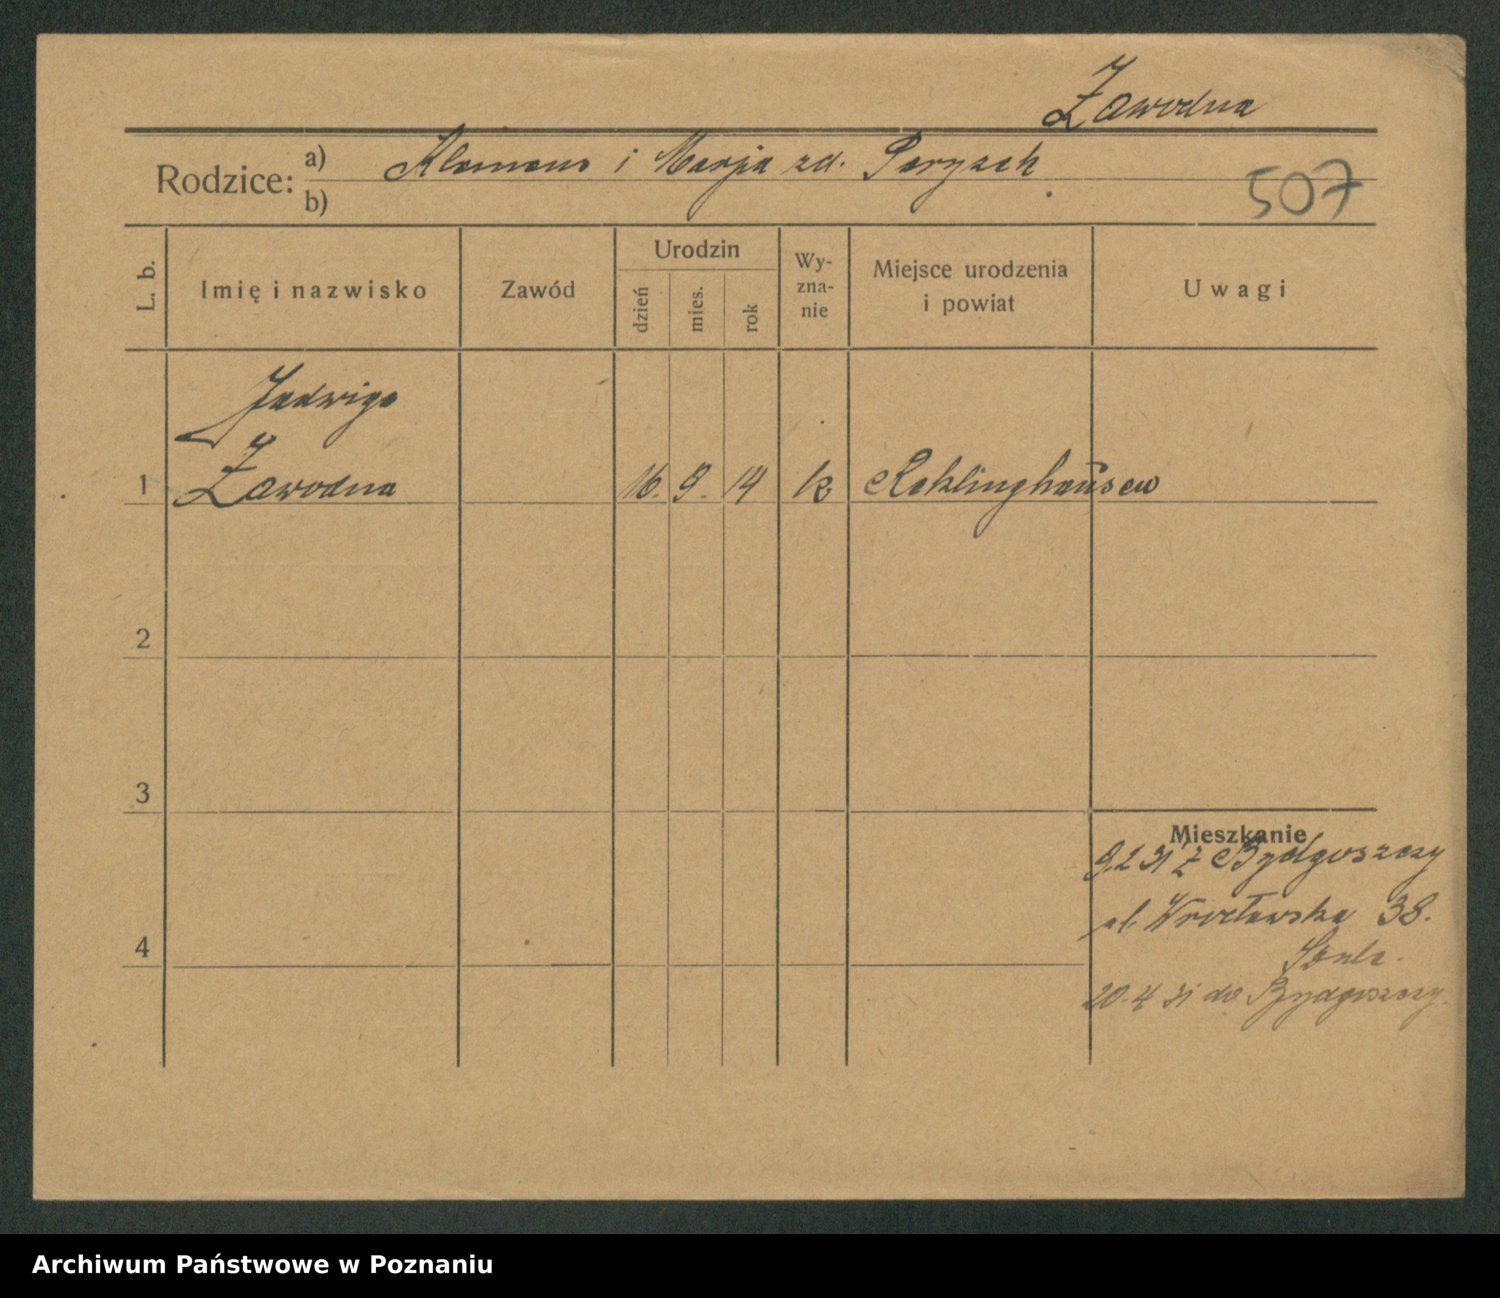 Zawodna
Rodzice: a) Klemens i Marja zd. Paryzek
b)
507
L. b.
Imię i nazwisko
Zawód
Urodzin
dzień
mies.
rok
Wy-
zna-
nie
Miejsce urodzenia
i powiat
Uwagi
Jadwiga
1 Zawodna 16. 9. 14 k Reklinghausen
2
3
Mieszkanie
9.2 31 z Bydgoszczy
ul. Wrocławska 38.
4
20.4 31 do Bydgoszczy.
Archiwum Państwowe w Poznaniu